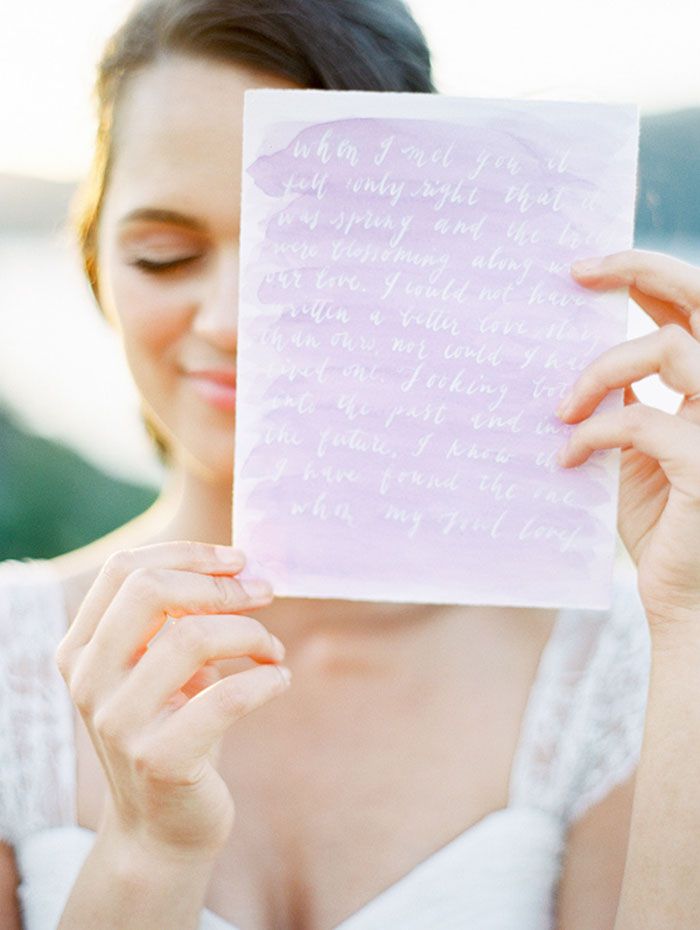 when I met you it
felt only right that it
was spring and the trees
were blossoming along with
our love. I could not have
written a better love story
than ours, nor could I have
lived one. Looking both
into the past and into
the future, I know
I have found the one
whom my soul loves